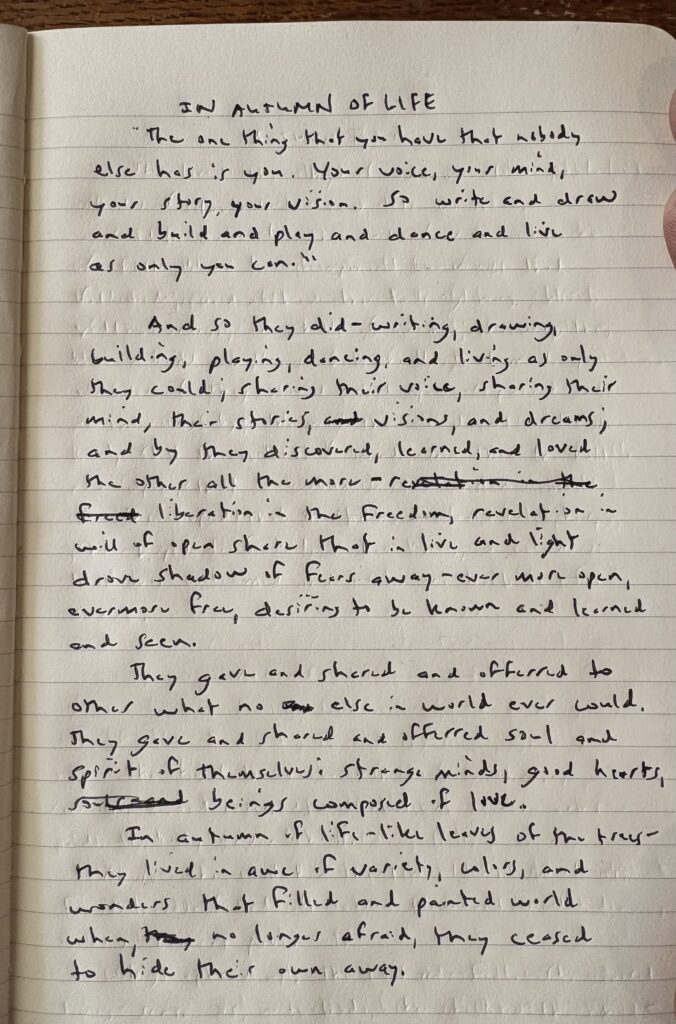 IN AUTUMN OF LIFE
"The one thing that you have that nobody
else has is you. Your voice, your mind,
your story, your vision. So write and draw
and build and play and dance and live
as only you can."
And so they did—writing, drawing,
building, playing, dancing, and living as only
they could; sharing their voice, sharing their
mind, their stories, and visions, and dreams;
and by they discovered, learned, and loved
the other all the more—revelation in the
freed liberation in the freedom, revelation in
will of open share that in live and light
drove shadow of fears away—ever more open,
evermore free, desiring to be known and learned
and seen.
They gave and shared and offerred to
other what no else in world ever could.
They gave and shared and offerred soul and
spirit of themselves: strange minds, good hearts,
beings composed of love.
In autumn of life—like leaves of the trees—
they lived in awe of variety, colors, and
wonders that filled and painted world
when, they no longer afraid, they ceased
to hide their own away.